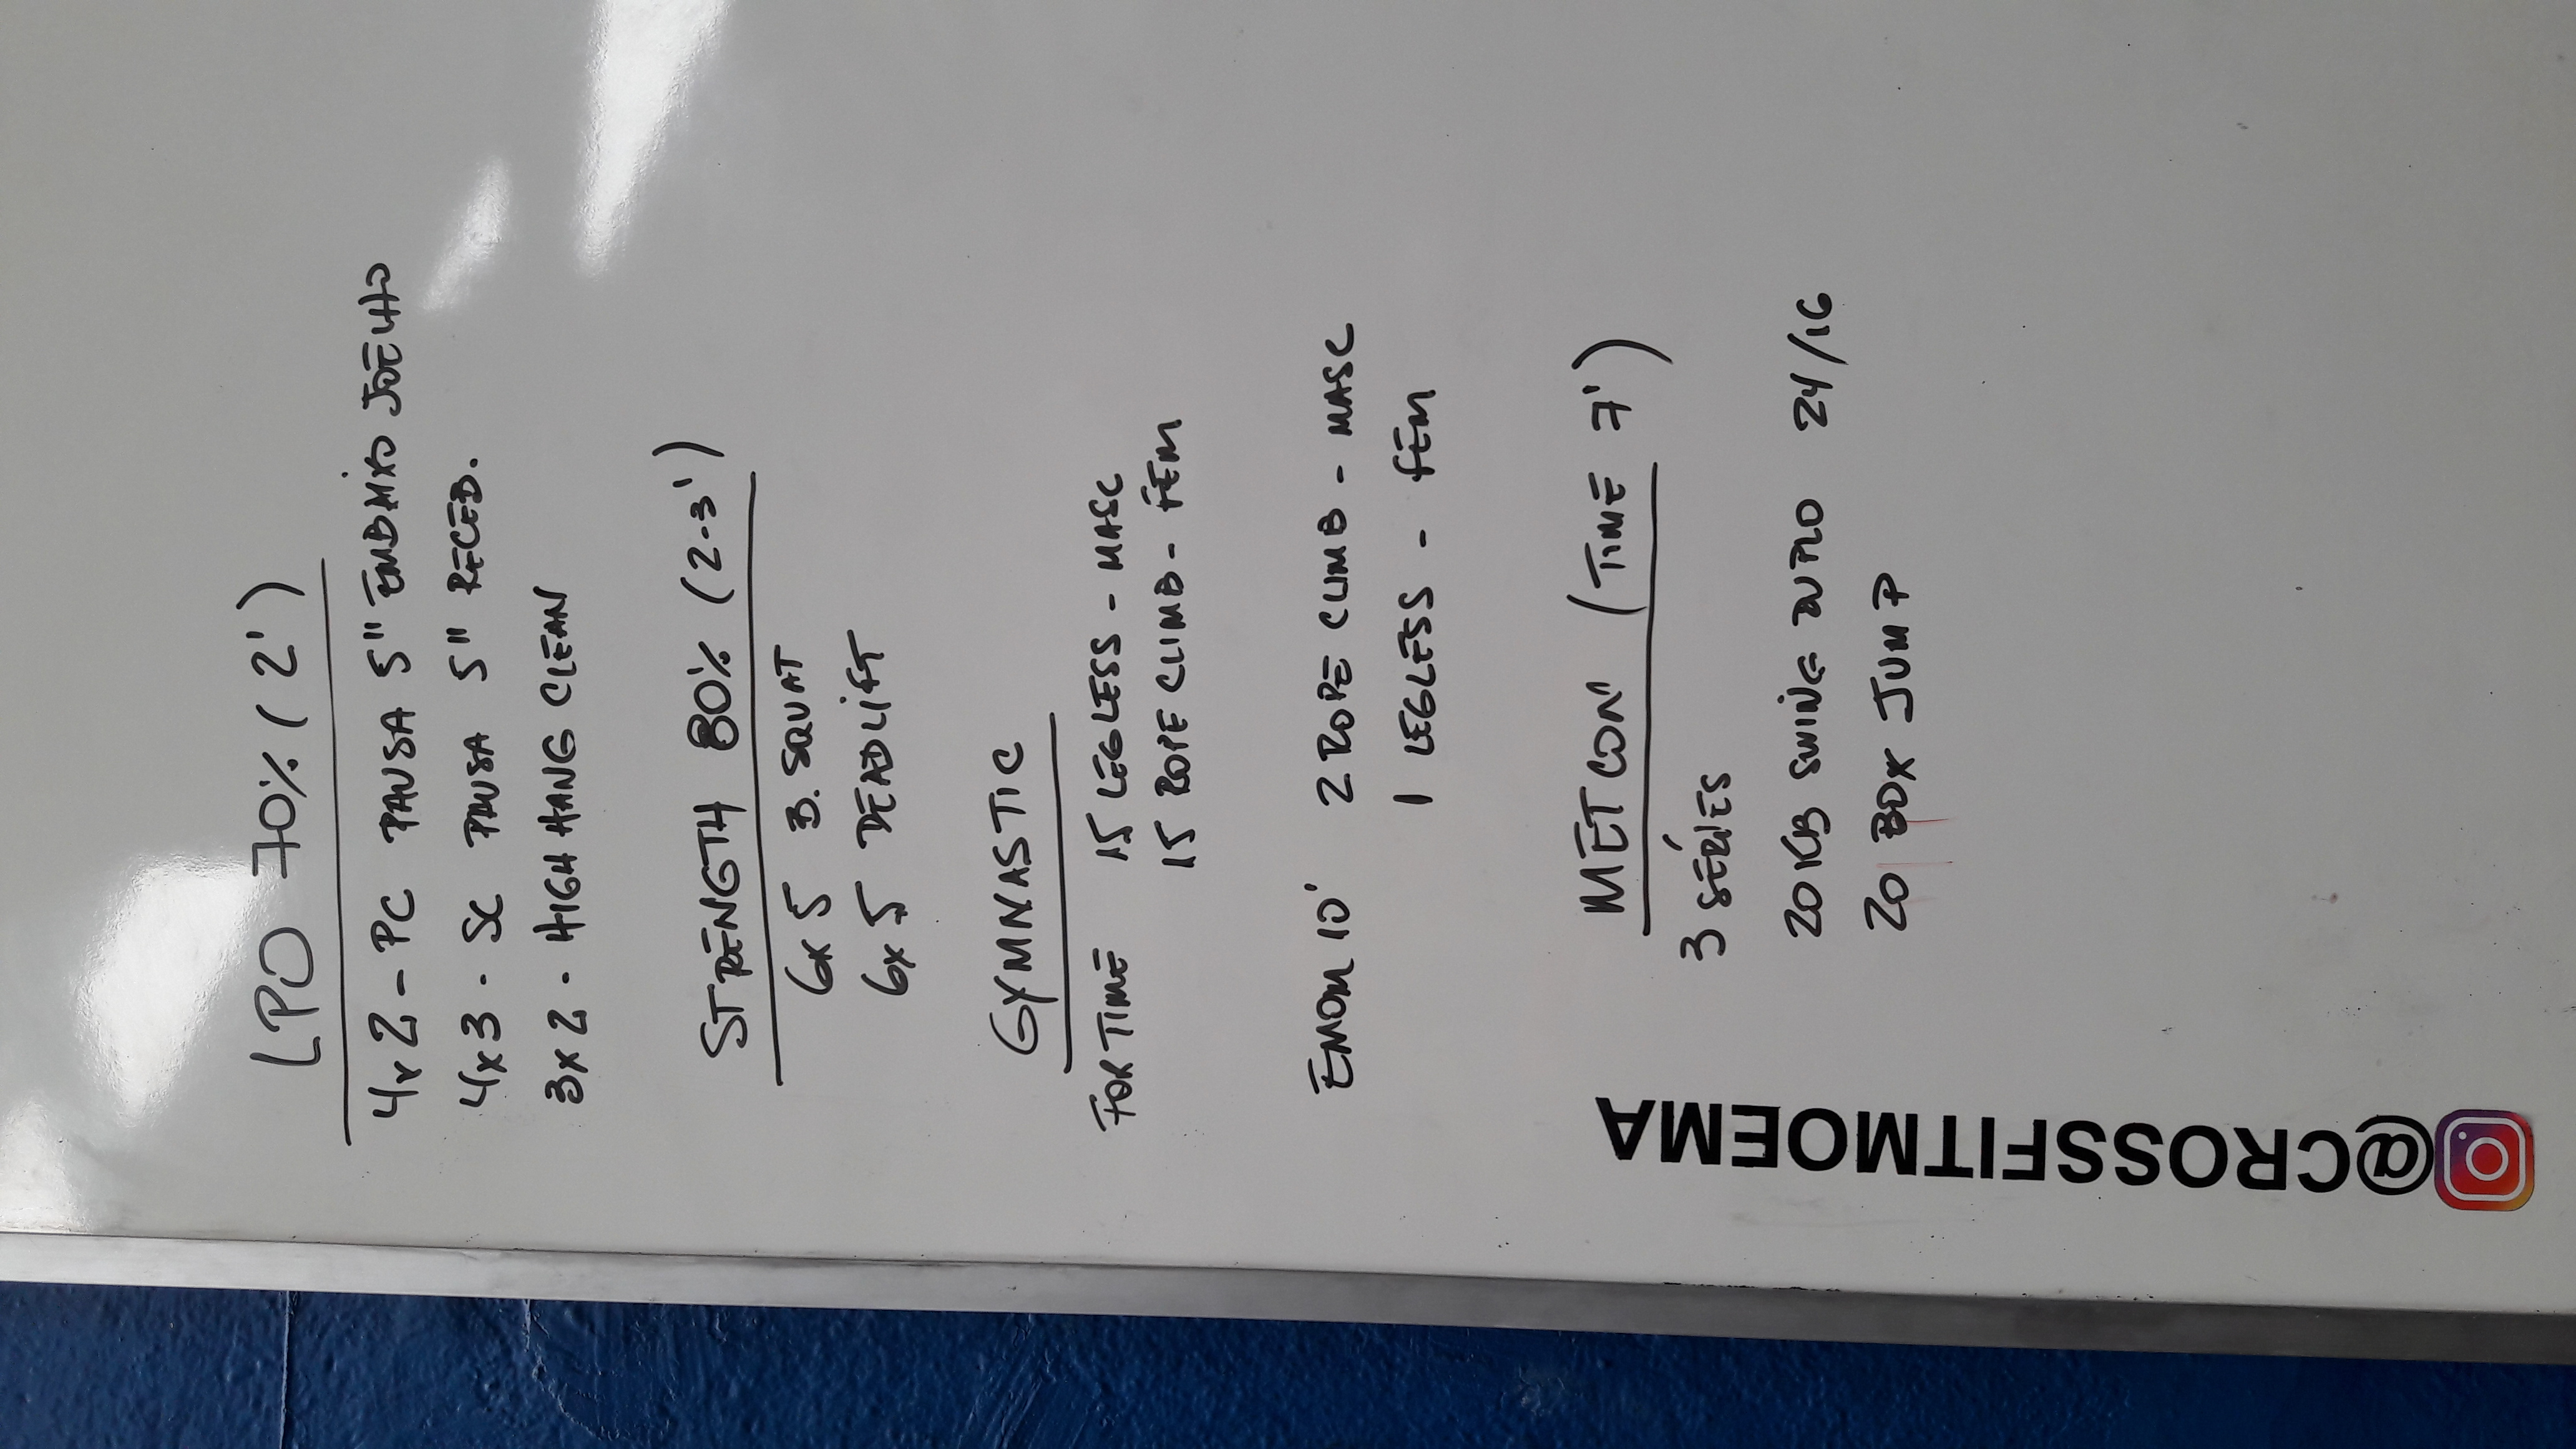 LPO 70% (2')
4x2 - PC PAUSA 5" EMBAIXO JOELHO
4x3 - SC PAUSA 5" RECEB.
3x2 - HIGH HANG CLEAN
STRENGTH 80% (2-3')
6x5 B. SQUAT
6x5 DEADLIFT
GYMNASTIC
FOR TIME 15 LEGLESS - MASC
15 ROPE CLIMB - FEM
EMOM 10' 2 ROPE CLIMB - MASC
1 LEGLESS - FEM
METCON (TIME 7')
3 SÉRIES
20 KB SWING DUPLO 24/16
20 BOX JUMP
@CROSSFITMOEMA